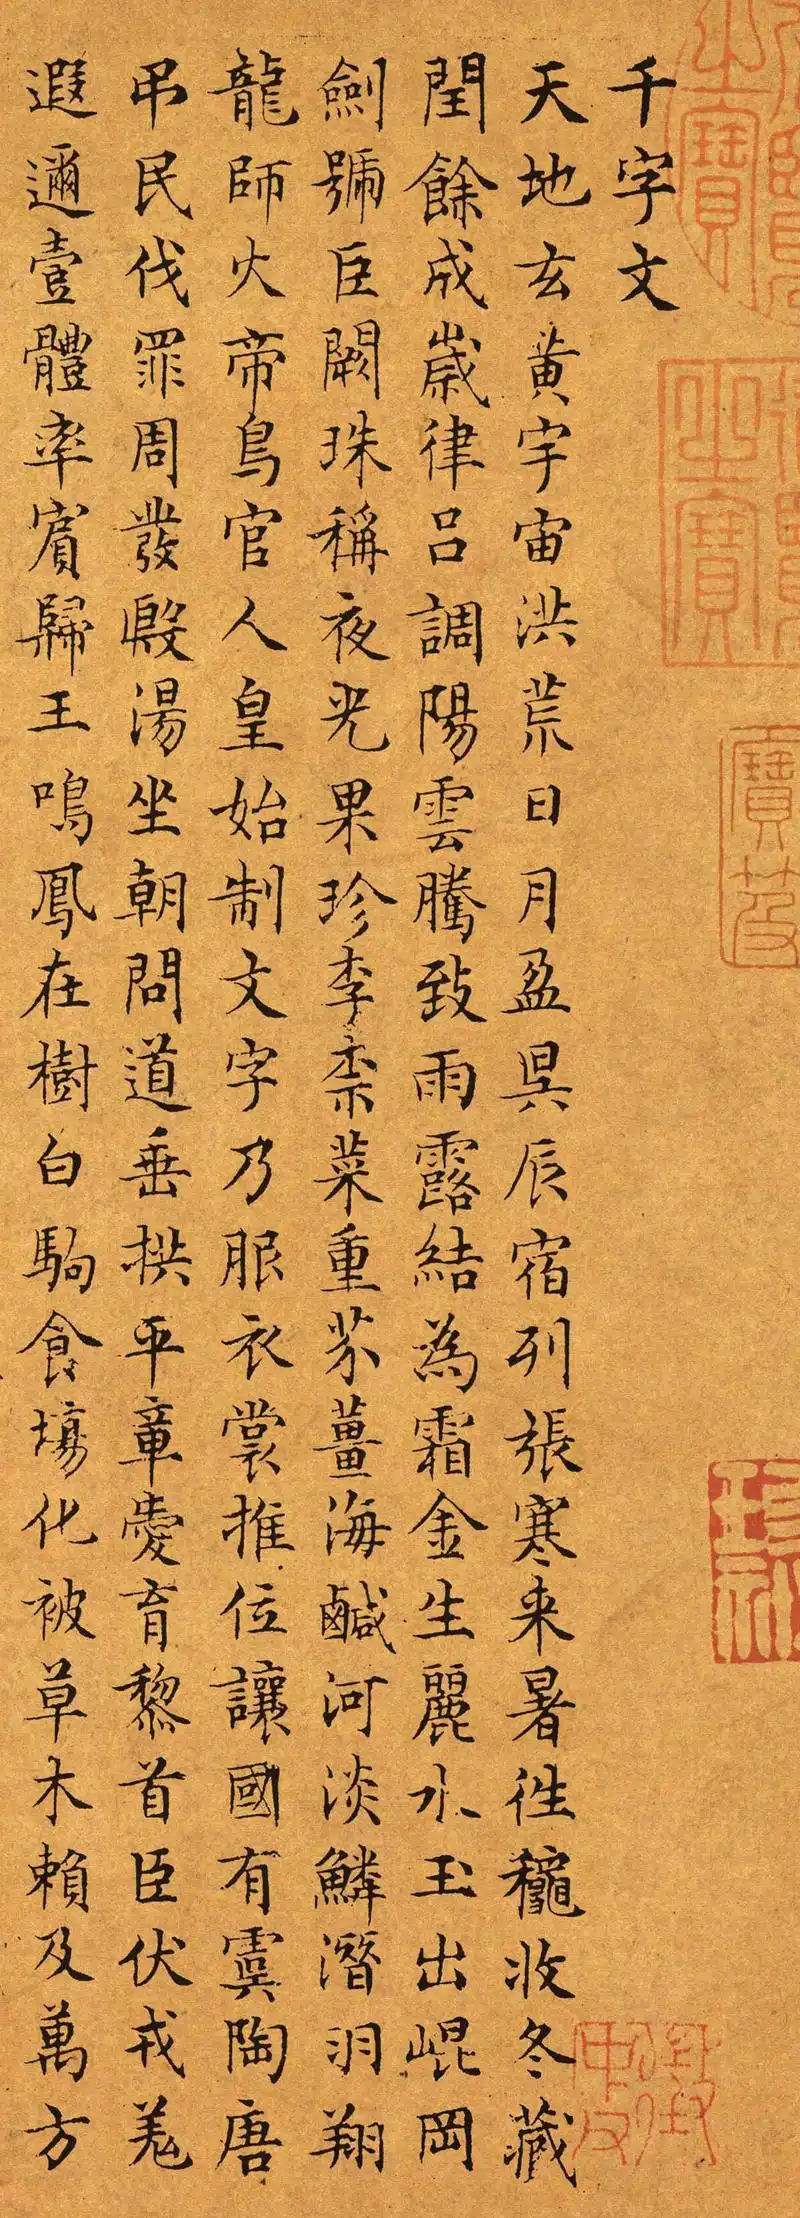 千字文
天地玄黃宇宙洪荒日月盈昃辰宿列張寒来暑往穐收冬藏
閏餘成歲律呂調陽雲騰致雨露結為霜金生麗水玉出崐岡
劍號巨闕珠稱夜光果珍李柰菜重芥薑海鹹河淡鱗潛羽翔
龍師火帝鳥官人皇始制文字乃服衣裳推位讓國有虞陶唐
弔民伐罪周發殷湯坐朝問道垂拱平章愛育黎首臣伏戎羌
遐邇壹體率賓歸王鳴鳳在樹白駒食場化被草木賴及萬方